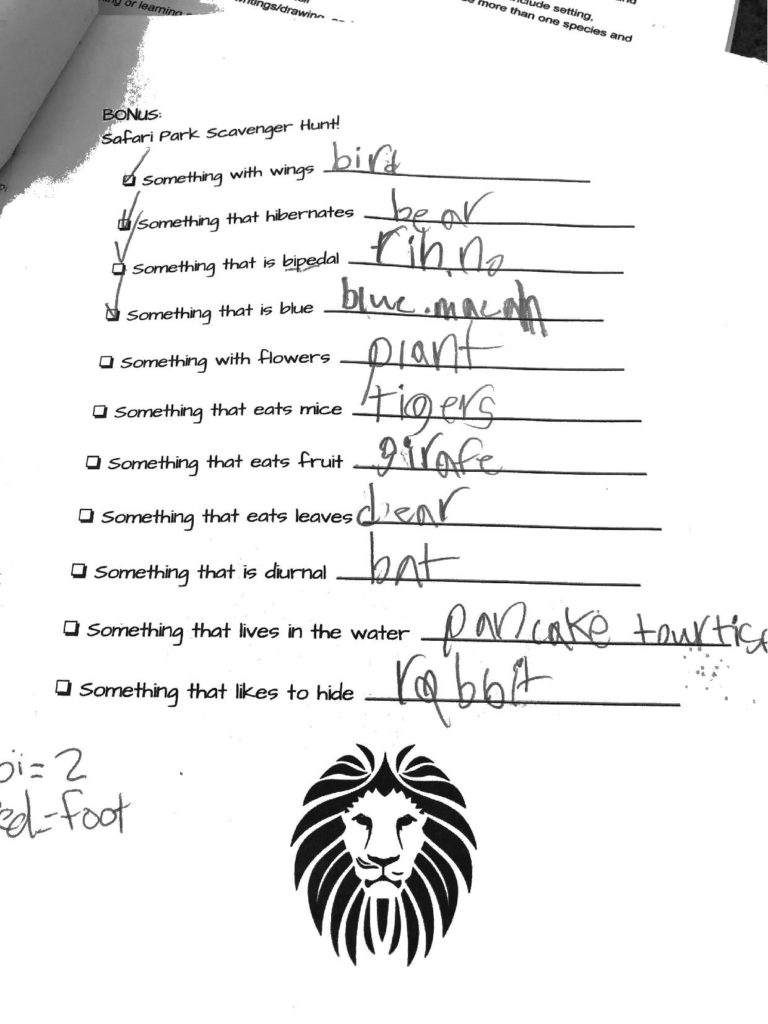 ng or learning
writings/drawing
include setting,
more than one species and
BONUS:
Safari Park Scavenger Hunt!
Something with wings bird
Something that hibernates bear
Something that is bipedal rih.no
Something that is blue blue.macah
Something with flowers plant
Something that eats mice tigers
Something that eats fruit girafe
Something that eats leaves dear
Something that is diurnal bat
Something that lives in the water pancake tourtise
Something that likes to hide rabbit
bi= 2
ped=foot